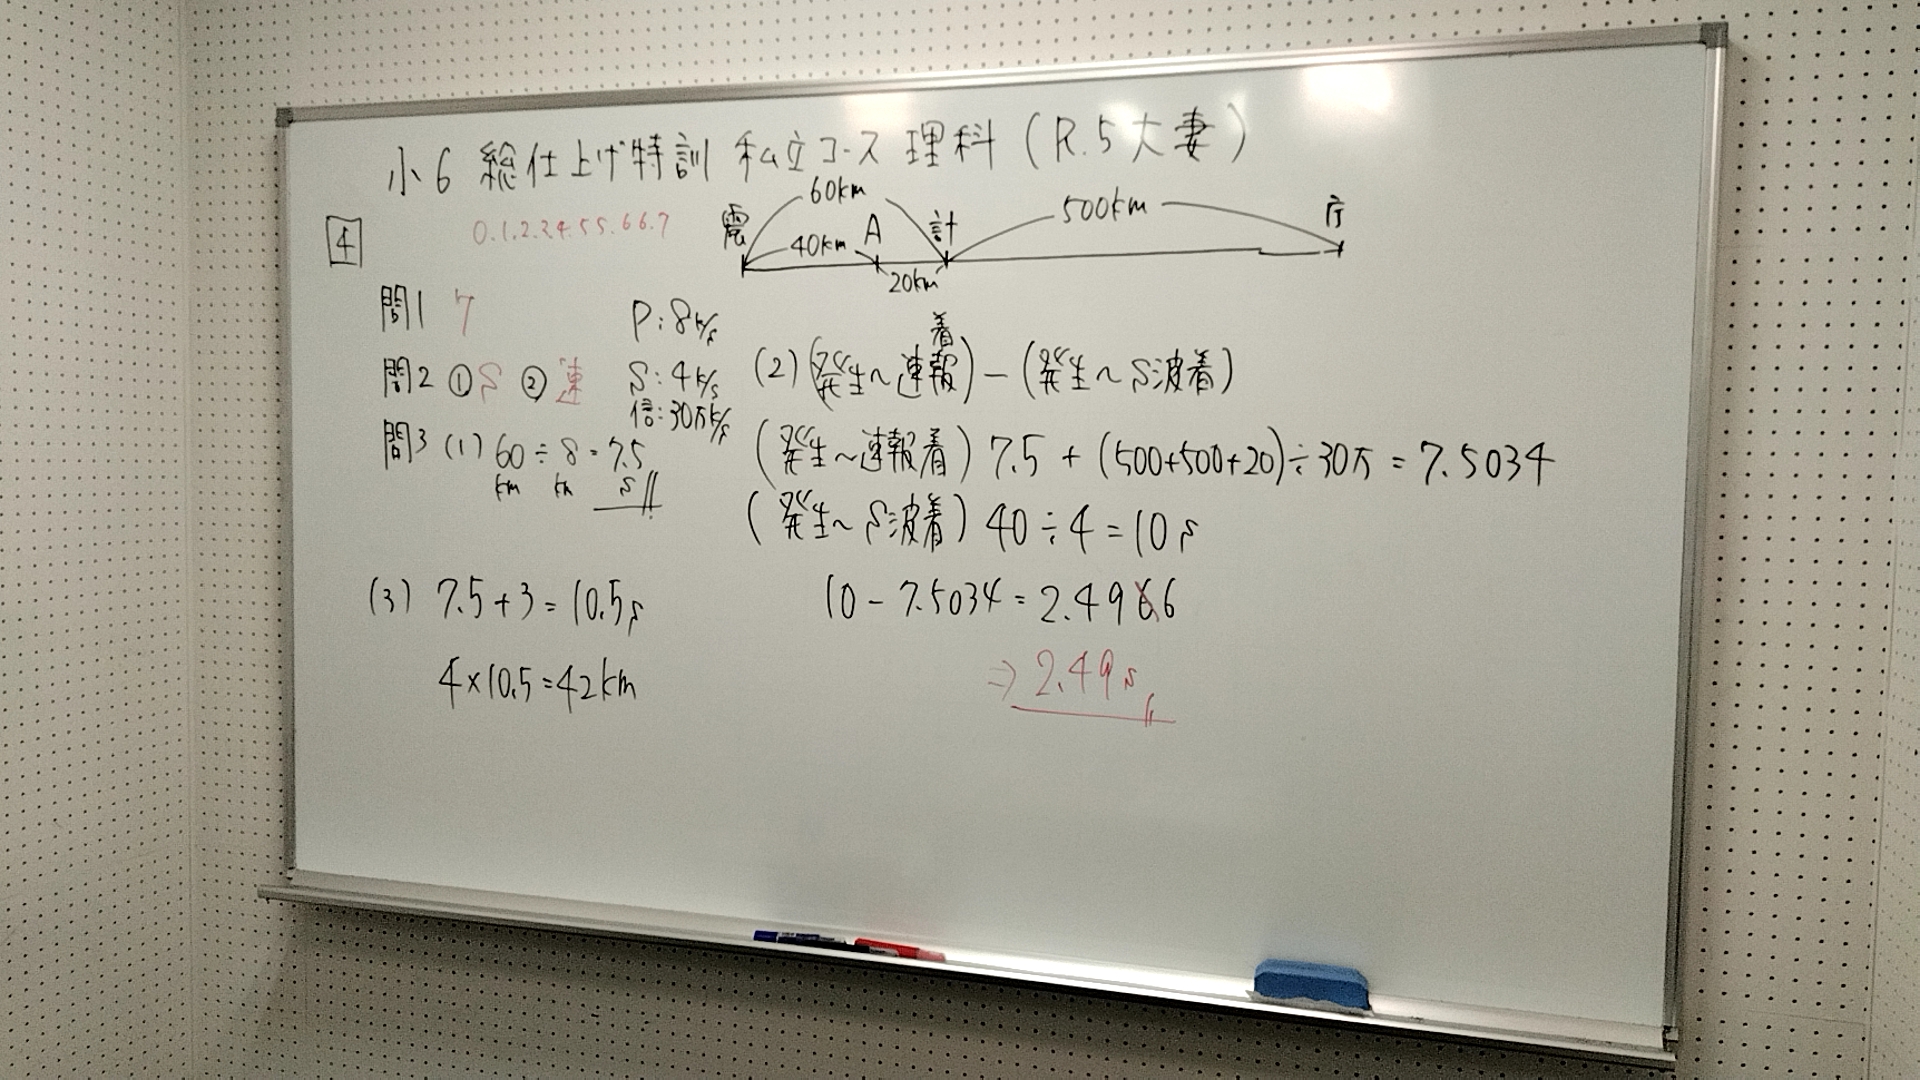 小6 総仕上げ特訓 私立コース 理科 (R.5大妻)
4
0.1.2.3.4.5.5.6.6.7
震 60km 計 500km 庁
40km A
20km
問1 7
問2 ①S ②速
P:8k/s
S:4k/s
信:30万k/s
問3 (1) 60km÷8km=7.5s
(2) (発生~速報着)-(発生~S波着)
(発生~速報着) 7.5+(500+500+20)÷30万=7.5034
(発生~S波着) 40÷4=10s
10-7.5034=2.4966
⇒2.49s
(3) 7.5+3=10.5s
4×10.5=42km